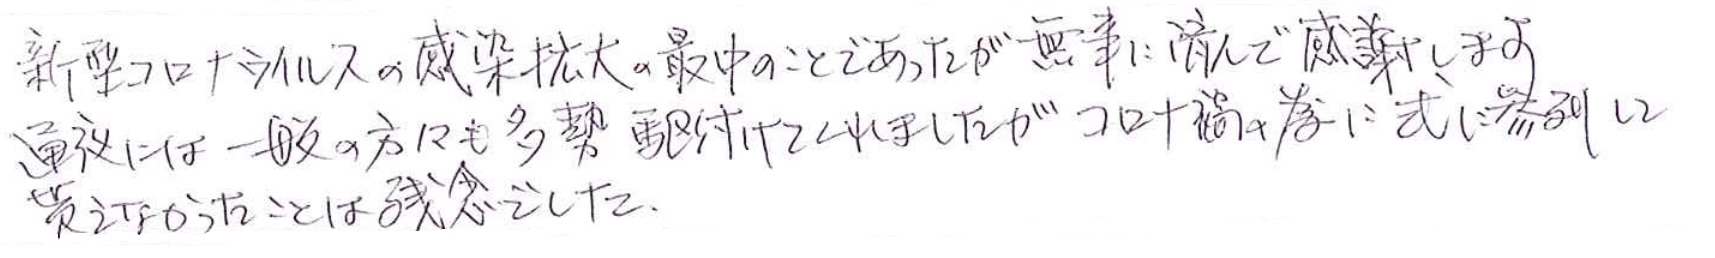 新型コロナウイルスの感染拡大の最中のことであったが無事に済んで感謝します
通夜には一般の方々も多勢駆付けてくれましたがコロナ禍の為に式に参列して
貰えなかったことは残念でした.